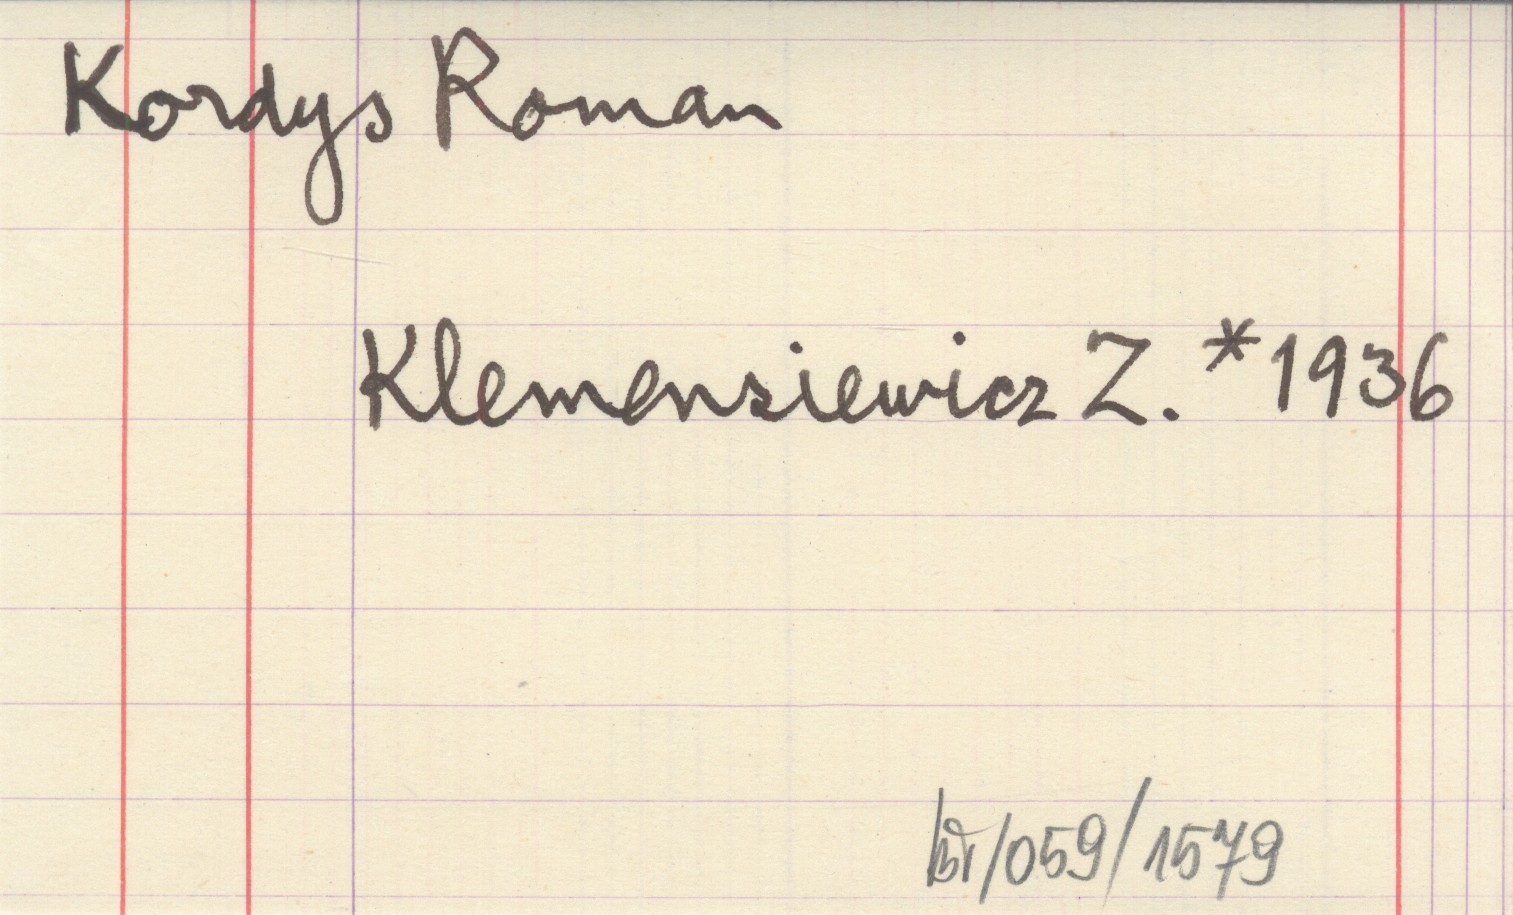 Kordys Roman
Klemensiewicz Z. *1936
/059/1579